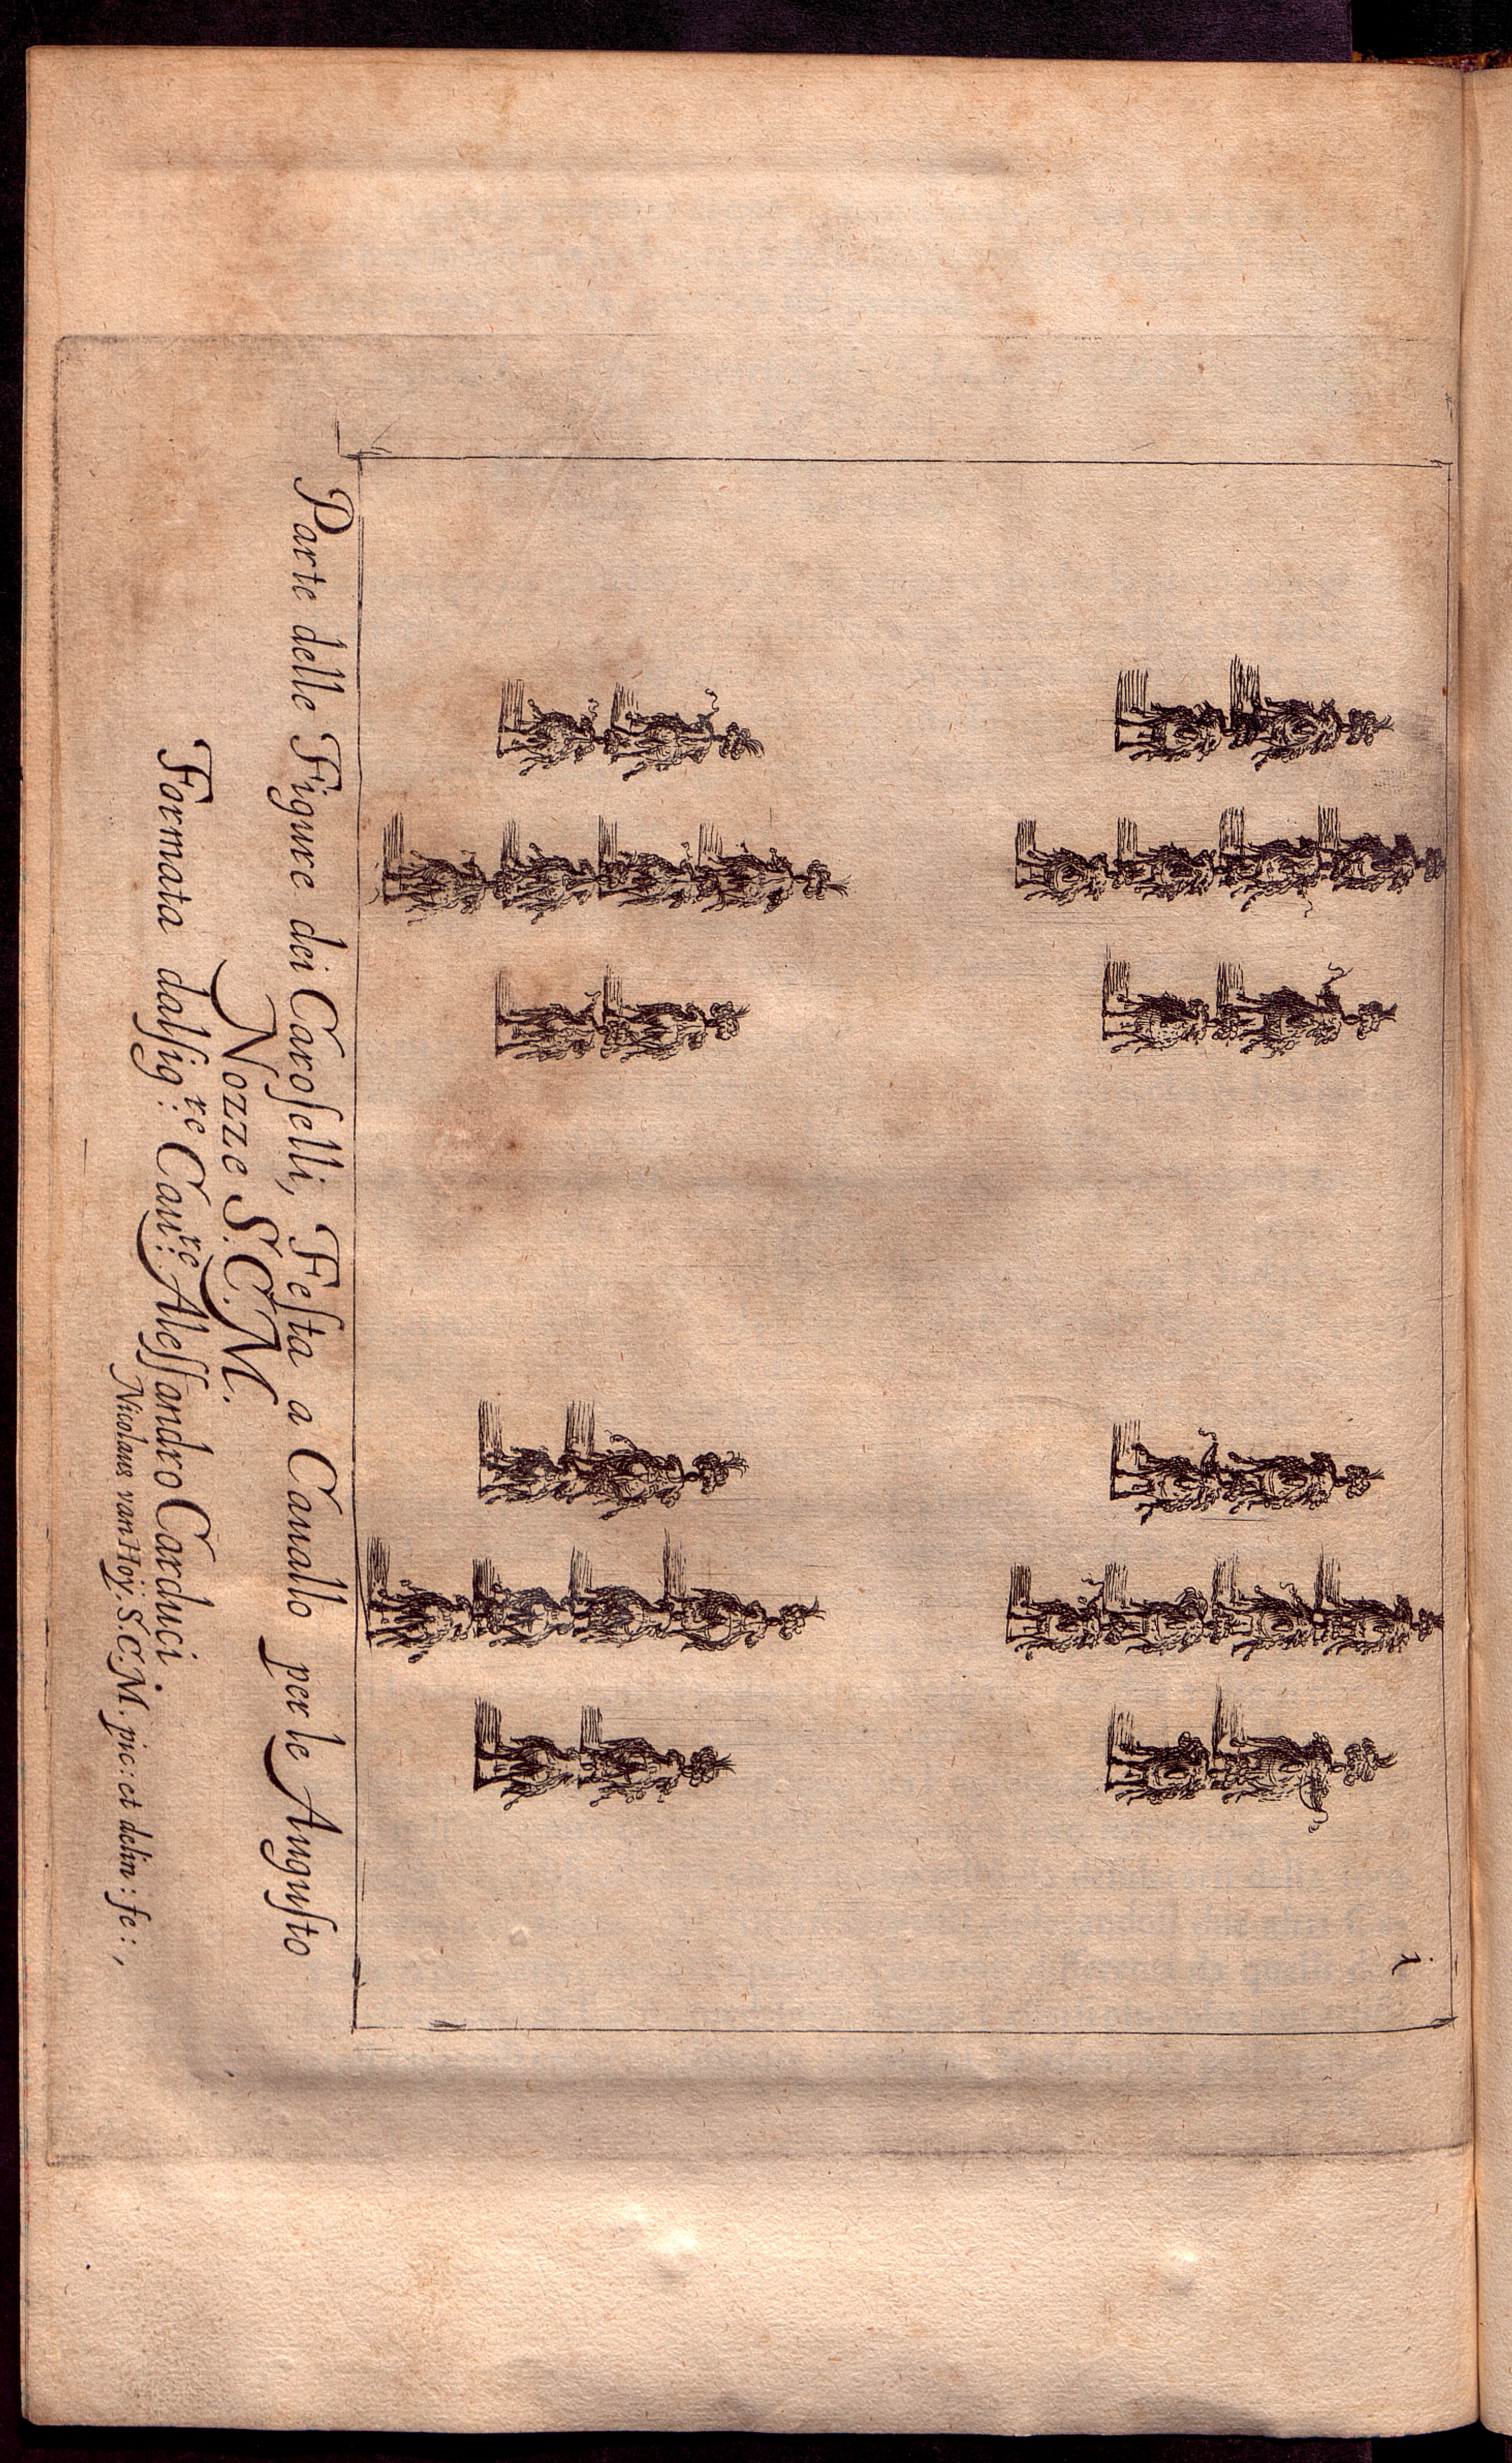 i
Parte delle Figure dei Caroſelli, Feſta a Cauallo per le Auguſto
Nozze S.C.M.
Formata dalſig:re Cau:re Aleſſandro Carduci
Nicolaus van Hoÿ. S.C.M. pic: et delin: fe:,